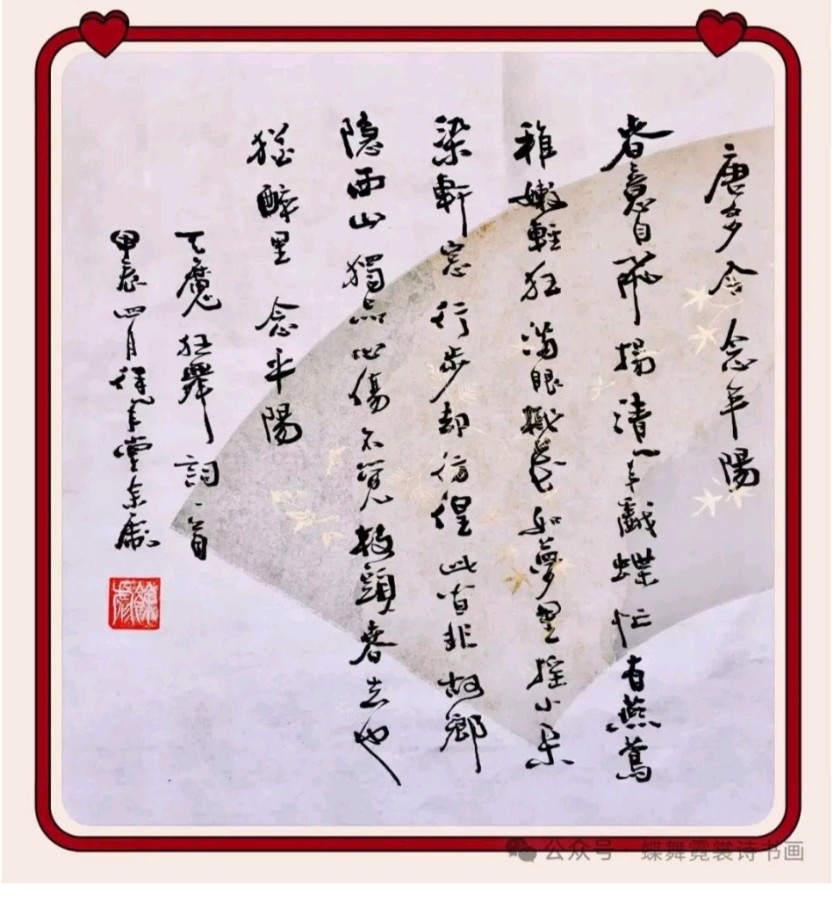 唐多令 念平陽
春意自飛揚清風戲蝶忙有燕鶯
稚嫩輕狂滿眼花如夢里搖小朵
染軒窗行步却彷徨此非故鄉
隱西山獨點心傷不覺枝頭春去也
猶醉里 念平陽
天魔狂舞詞一首
甲辰四月堂余
公众号 · 蝶舞霓裳诗书画